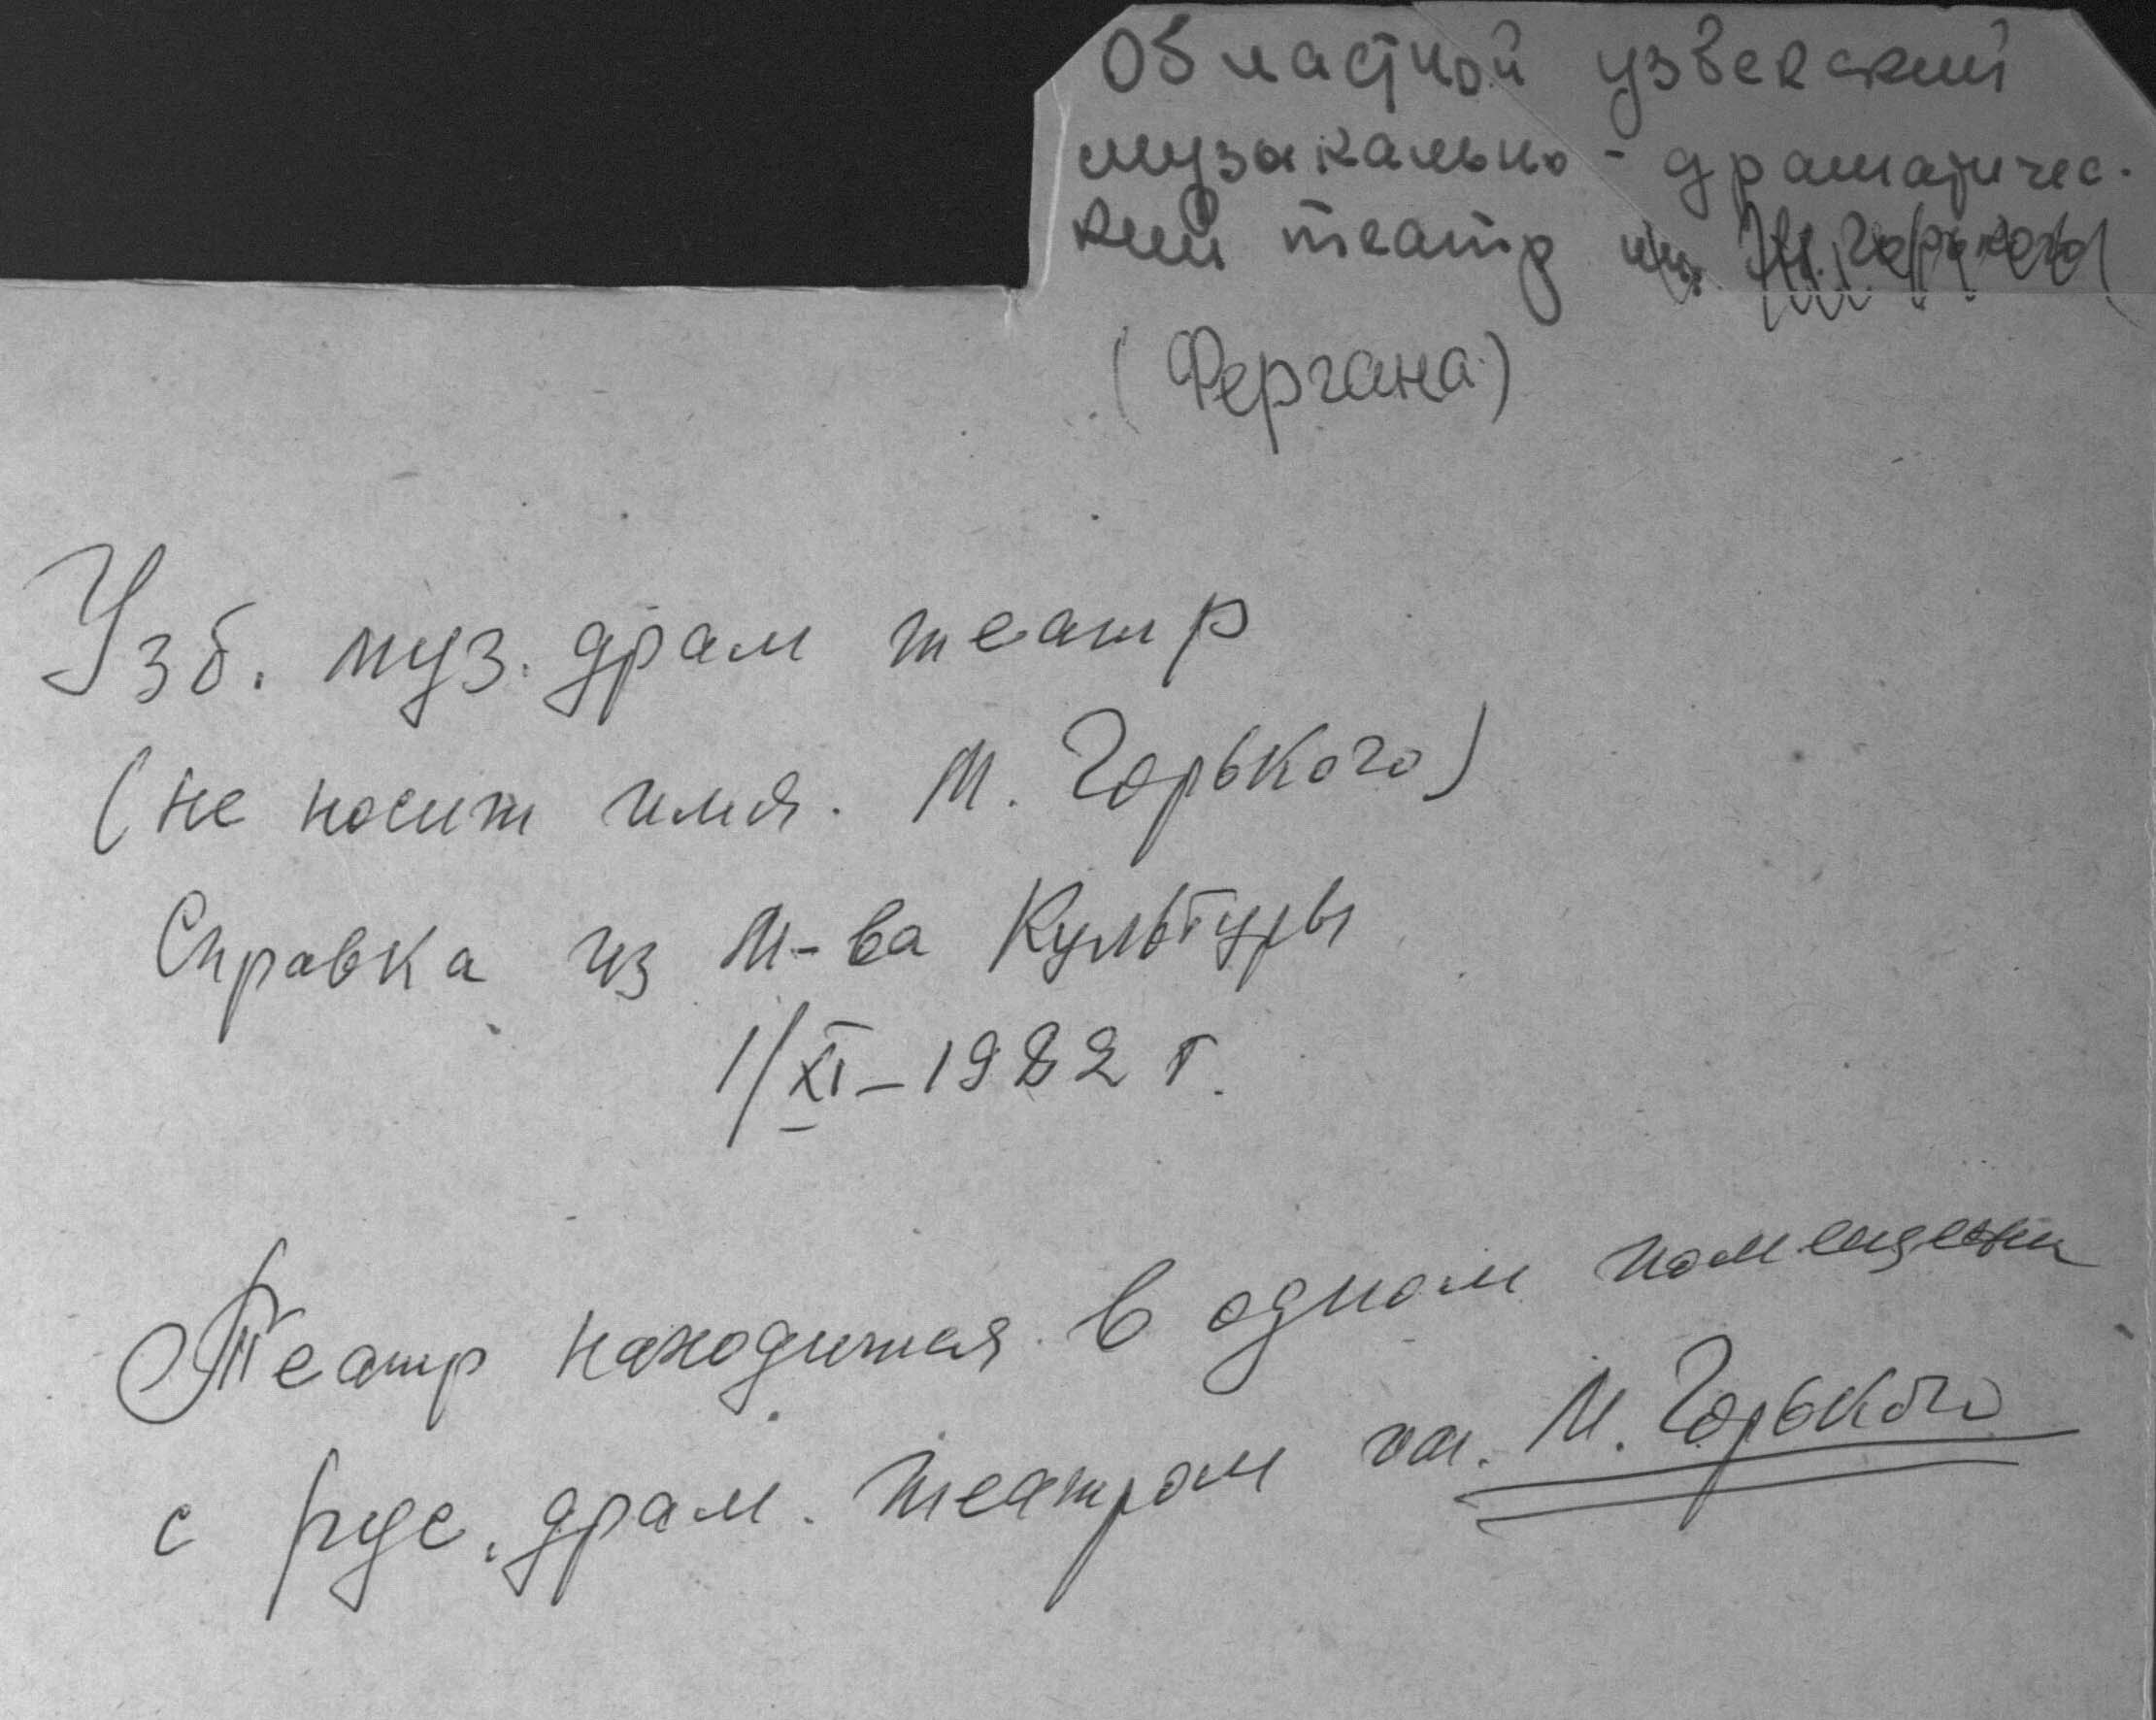 Областной узбекский
музыкально-драматичес-
кий театр им. М. Горького
(Фергана)
Узб. муз. драм театр
(не носит имя. М. Горького)
Справка из М-ва Культуры
1/XI-1982 г.
Театр находится в одном помещении
с рус. драм. театром им. М. Горького